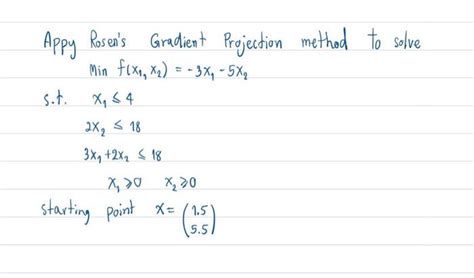 Appy Rosen's Gradient Projection method to solve
Min f(x₁, x₂) = -3x₁ - 5x₂
s.t. x₁ ≤ 4
2x₂ ≤ 18
3x₁+2x₂ ≤ 18
x₁ ≥ 0 x₂ ≥ 0
starting point x = (1.5
5.5)